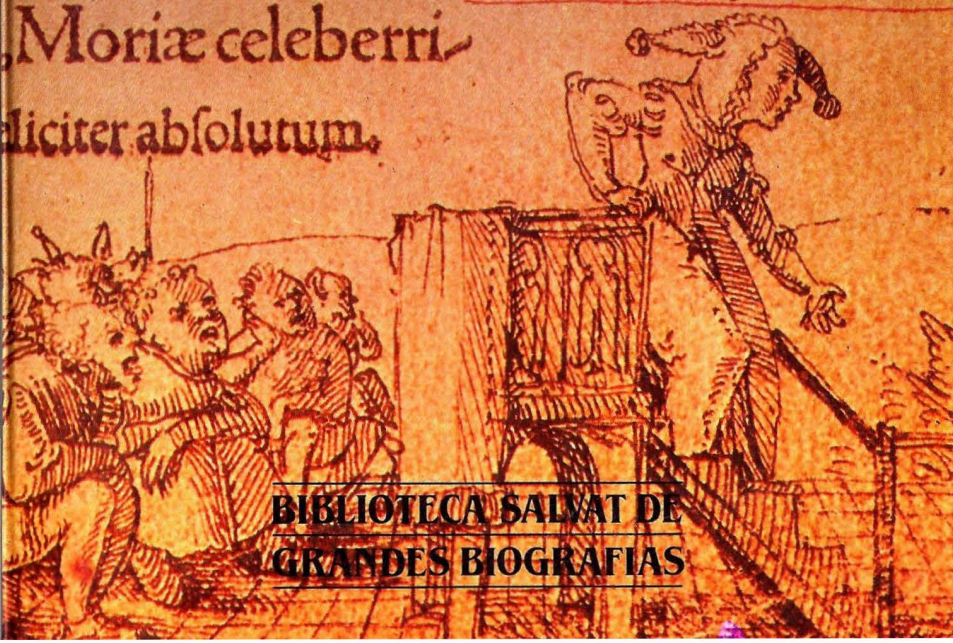 Moriæ celeberri-
liciter abſolutum.
BIBLIOTECA SALVAT DE
GRANDES BIOGRAFIAS